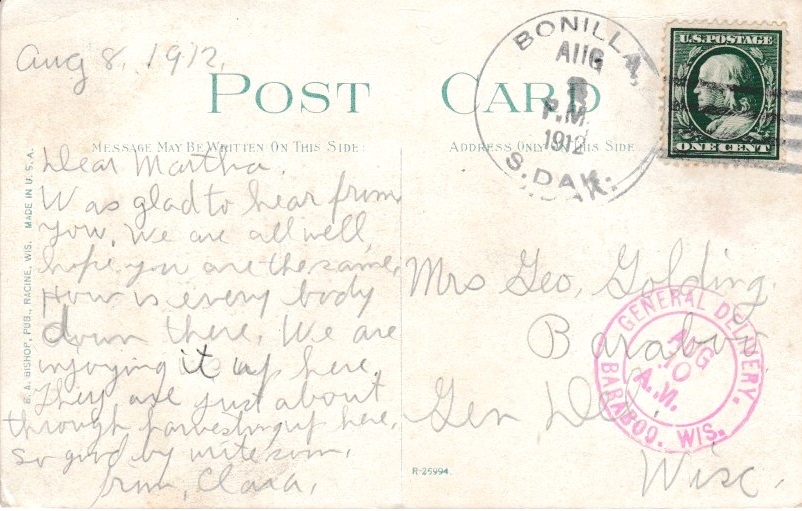 Aug 8, 1912,
POST CARD
MESSAGE MAY BE WRITTEN ON THIS SIDE:
ADDRESS ONLY ON THIS SIDE
BONILLA,
AUG
8
P.M.
1912
S. DAK.
U.S. POSTAGE
ONE CENT
Dear Martha.
Was glad to hear from
you, We are all well,
hope you are the same,
How is every body
down there, We are
injoying it up here,
They are just about
through harvesting up here,
So good by write soon,
from, Clara,
Mrs Geo, Golding.
Baraboo
Gen Del.
Wisc,
GENERAL DELIVERY.
AUG
10
A.M.
BARABOO. WIS.
E. A. BISHOP, PUB., RACINE, WIS. MADE IN U. S. A.
R-25994